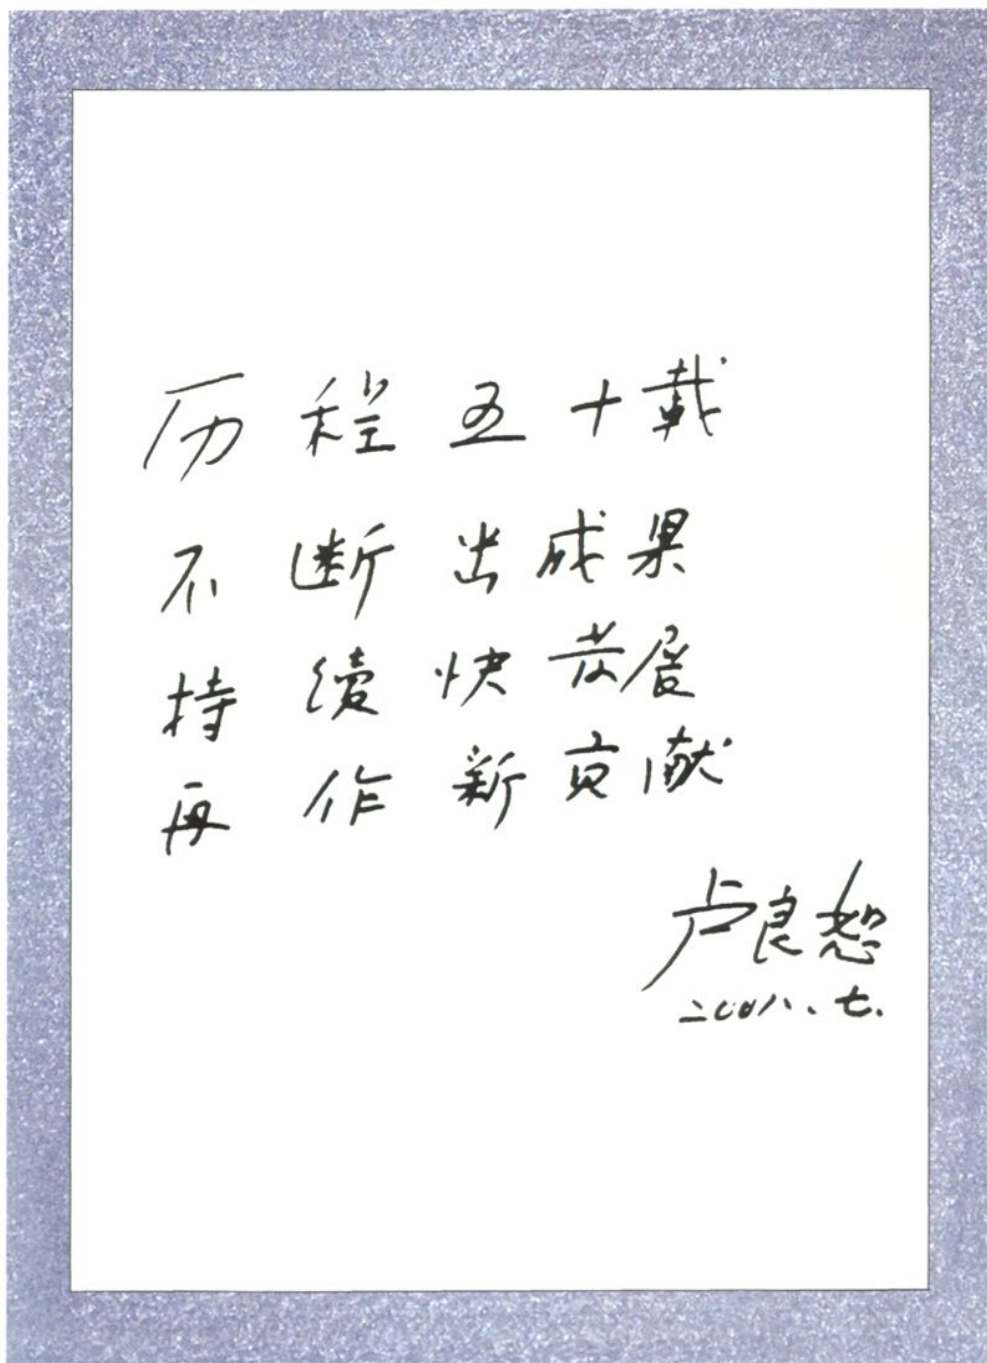 历程五十载
不断出成果
持续快发展
再作新贡献
卢良恕
二〇〇八.七.